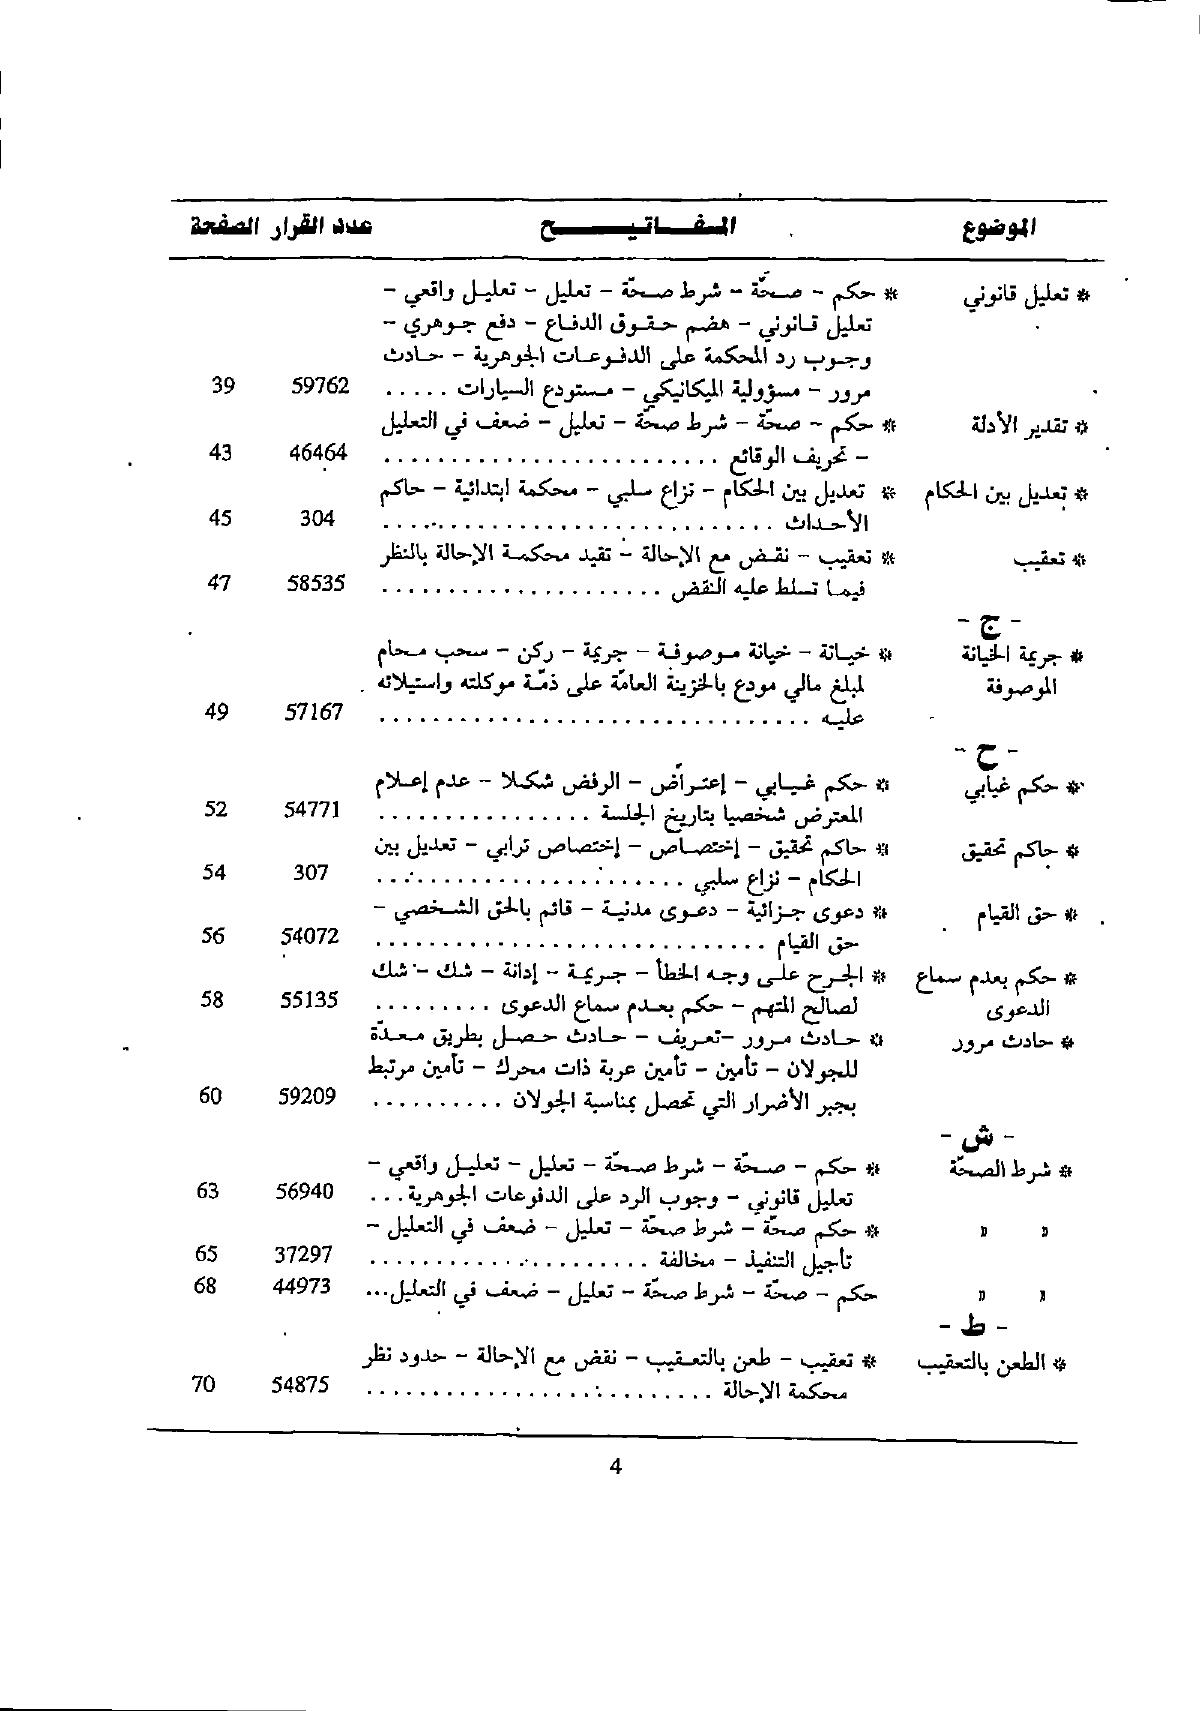 الموضوع المفاتيح عدد القرار الصفحة
* تعليل قانوني * حكم - صحّة - شرط صحّة - تعليل - تعليل واقعي -
تعليل قانوني - هضم حقوق الدفاع - دفع جوهري -
وجوب رد المحكمة على الدفوعات الجوهرية - حادث
مرور - مسؤولية الميكانيكي - مستودع السيارات ..... 59762 39
* تقدير الأدلة * حكم - صحّة - شرط صحّة - تعليل - ضعف في التعليل
- تحريف الوقائع .......................... 46464 43
* تعديل بين الحكام * تعديل بين الحكام - نزاع سلبي - محكمة ابتدائية - حاكم
الأحداث .............................. 304 45
* تعقيب * تعقيب - نقض مع الإحالة - تقيد محكمة الإحالة بالنظر
فيما تسلط عليه النقض ...................... 58535 47
- ج -
* جريمة الخيانة * خيانة - خيانة موصوفة - جريمة - ركن - سحب محام
الموصوفة لمبلغ مالي مودع بالخزينة العامّة على ذمّة موكلته واستيلائه
عليه ................................. 57167 49
- ح -
* حكم غيابي * حكم غيابي - إعتراض - الرفض شكلا - عدم إعلام
المعترض شخصيا بتاريخ الجلسة ................ 54771 52
* حاكم تحقيق * حاكم تحقيق - إختصاص - إختصاص ترابي - تعديل بين
الحكام - نزاع سلبي ........................ 307 54
* حق القيام * دعوى جزائية - دعوى مدنية - قائم بالحق الشخصي -
حق القيام .............................. 54072 56
* حكم بعدم سماع * الجرح على وجه الخطأ - جريمة - إدانة - شك - شك
الدعوى لصالح المتهم - حكم بعدم سماع الدعوى ......... 55135 58
* حادث مرور * حادث مرور -تعريف - حادث حصل بطريق معدّة
للجولان - تأمين - تأمين عربة ذات محرك - تأمين مرتبط
بجبر الأضرار التي تحصل بمناسبة الجولان .......... 59209 60
- ش -
* شرط الصحّة * حكم - صحّة - شرط صحّة - تعليل - تعليل واقعي -
تعليل قانوني - وجوب الرد على الدفوعات الجوهرية ... 56940 63
" " * حكم صحّة - شرط صحّة - تعليل - ضعف في التعليل -
تأجيل التنفيذ - مخالفة ...................... 37297 65
" " حكم - صحّة - شرط صحّة - تعليل - ضعف في التعليل... 44973 68
- ط -
* الطعن بالتعقيب * تعقيب - طعن بالتعقيب - نقض مع الإحالة - حدود نظر
محكمة الإحالة ........................... 54875 70
4